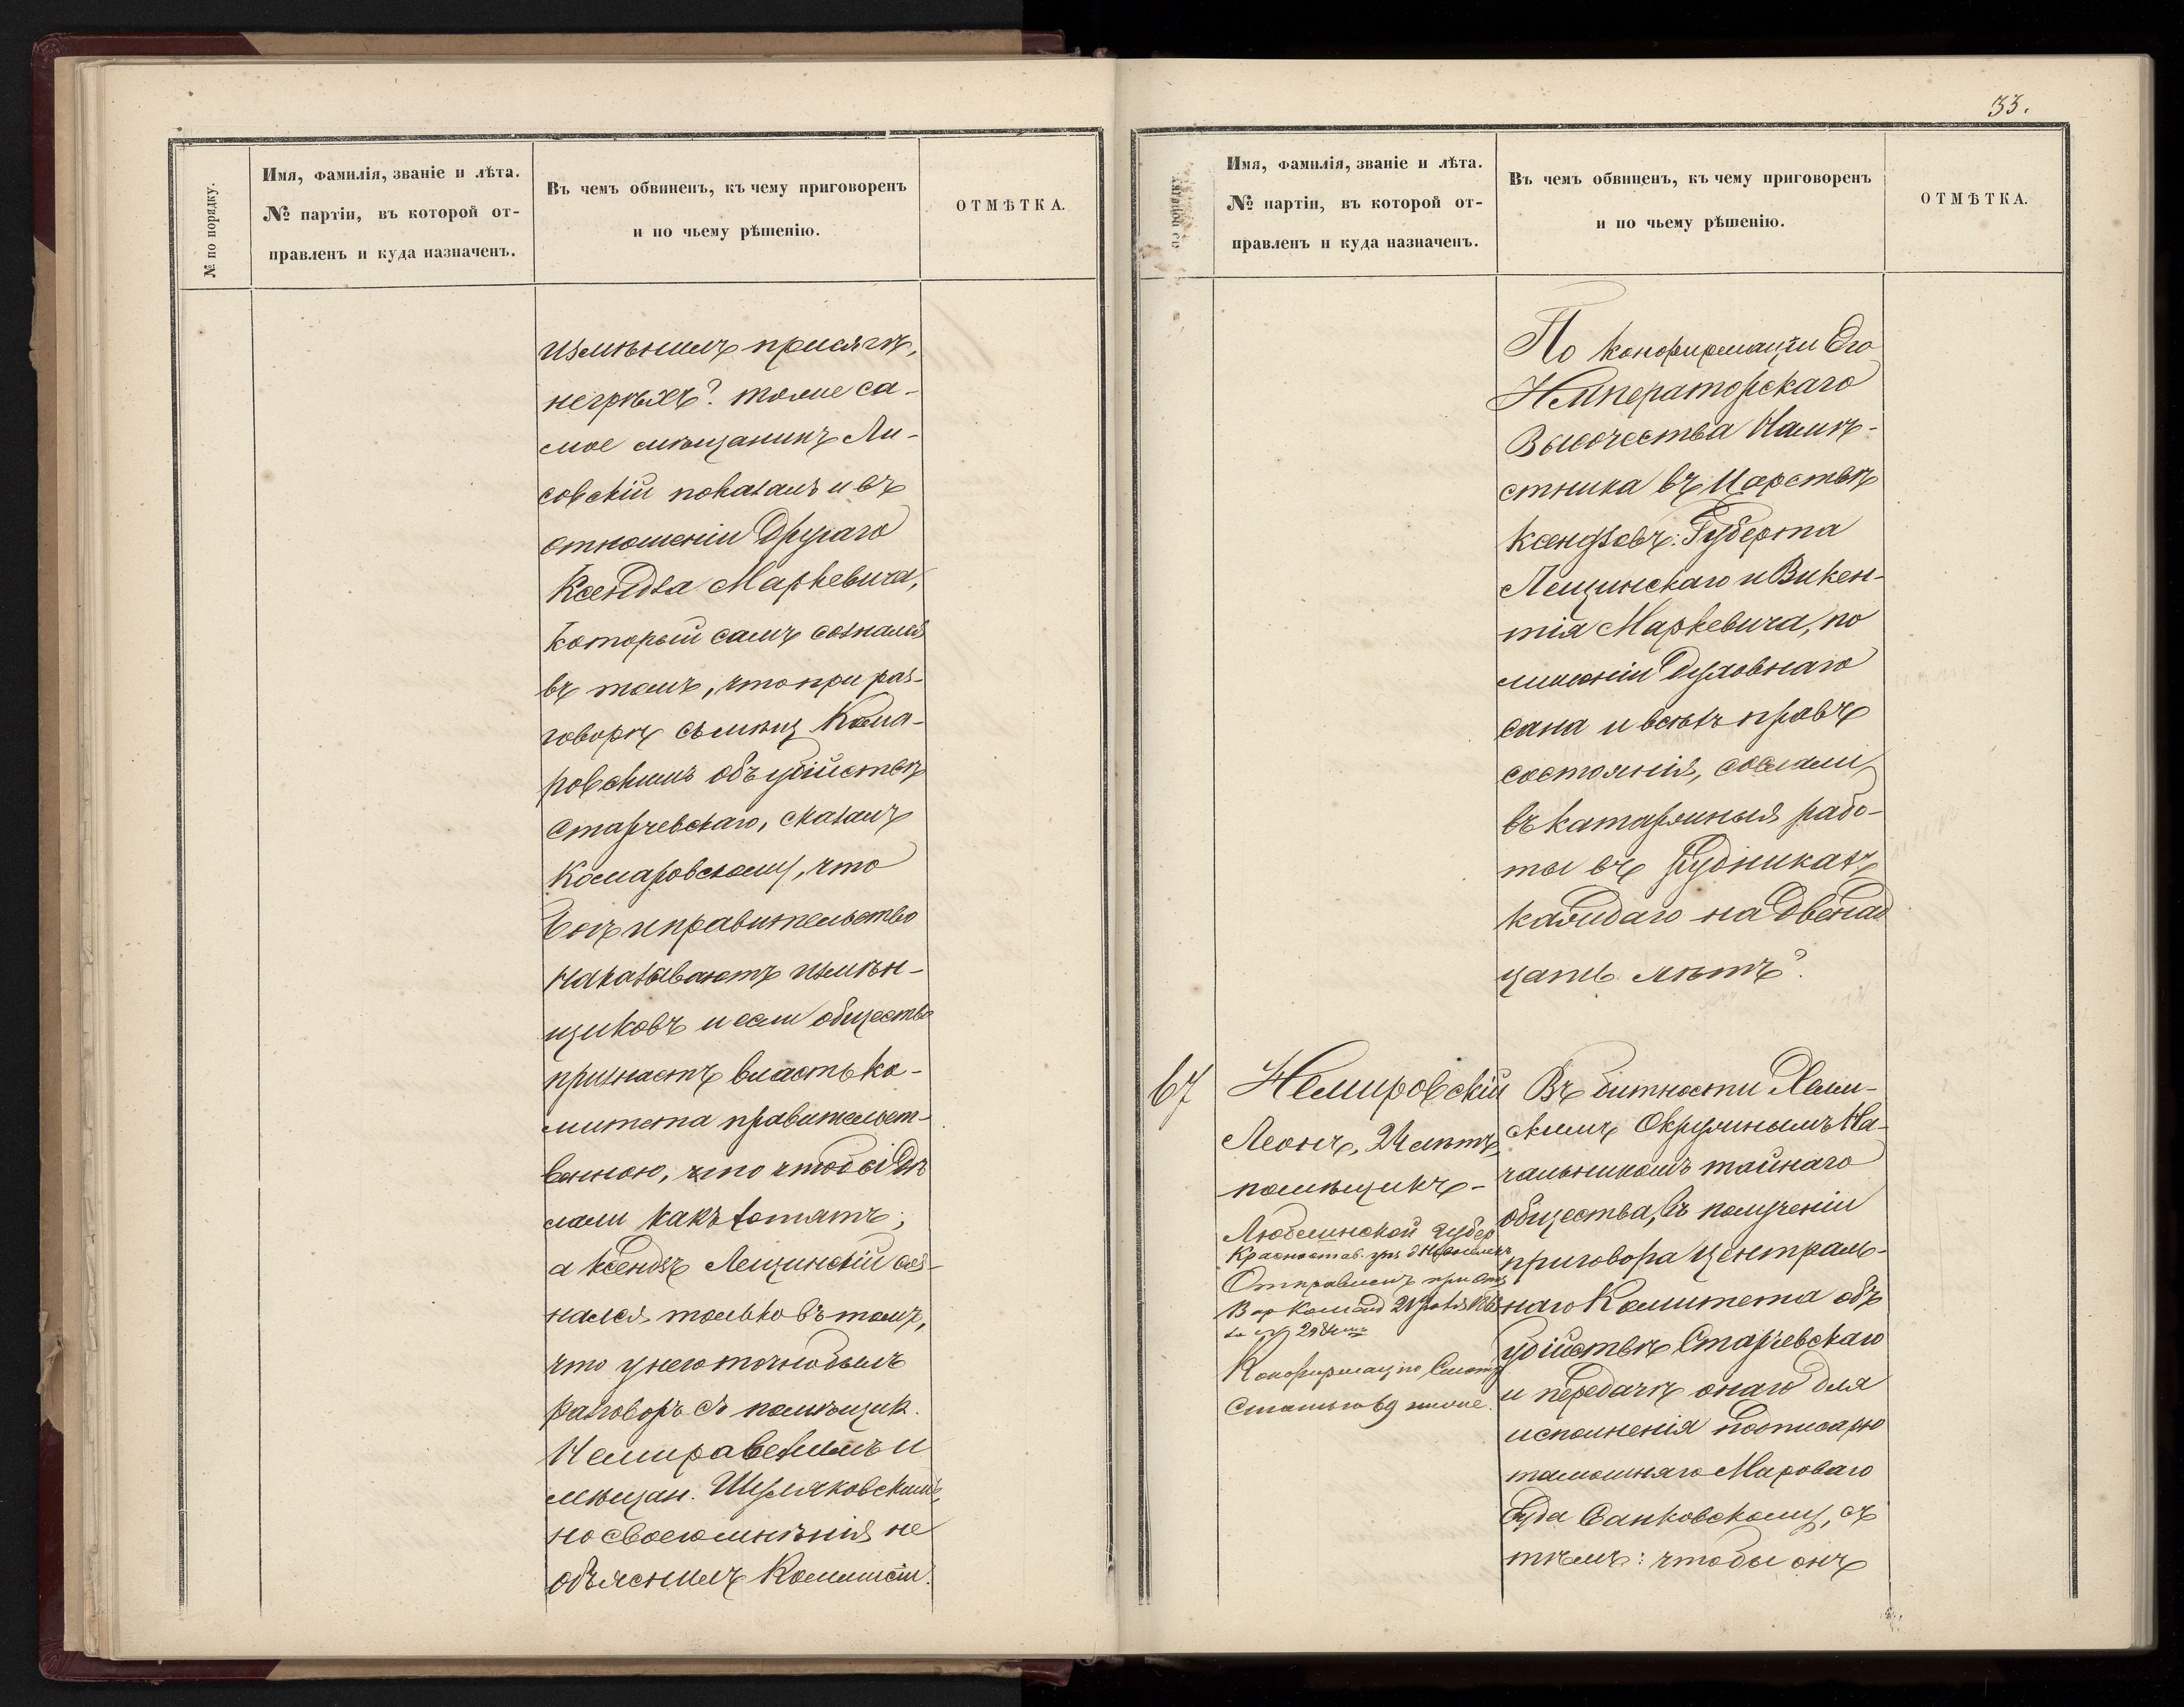 № по порядку.
Имя, фамилія, званіе и лѣта.
№ партіи, въ которой от-
правленъ и куда назначенъ.
Въ чемъ обвиненъ, къ чему приговоренъ
и по чьему рѣшенію.
ОТМѢТКА.
измѣнилъ присягѣ,
негрѣхъ? тоже са-
мое мѣщанинъ Ли-
совскій показалъ и въ
отношеніи другаго
Ксендза Маркевича,
который самъ сознался
въ томъ, что при раз-
говорѣ съ мѣщ Кома-
ровскимъ объ убійствѣ
Старчевскаго, сказалъ
Комаровскому, что
Богъ и правительство
наказываютъ измѣн-
щиковъ и если общество
признаетъ власть ко-
митета правительст-
венною, то чтобы дѣ
лали какъ хотятъ;
а ксендзъ Лещинскій соз-
нался только въ томъ,
что у него точно былъ
разговоръ съ помѣщик.
Немировскимъ и
мѣщан. Шуляковскимъ,
но своего мнѣнія не
объяснилъ Комиссіи.
33.
Имя, фамилія, званіе и лѣта.
№ партіи, въ которой от-
правленъ и куда назначенъ.
Въ чемъ обвиненъ, къ чему приговоренъ
и по чьему рѣшенію.
ОТМѢТКА.
По конфирмаціи Его
Императорскаго
Высочества Намѣ-
стника въ Царствѣ
ксендзовъ: Губерта
Лещинскаго и Викен-
тія Маркевича, по
лишеніи духовнаго
сана и всѣхъ правъ
состоянія, сослали
въ каторжныя рабо-
ты въ рудникахъ
каждаго на двенад
цать лѣтъ.
67
Немировскій
Леонъ, 24 лѣтъ
помѣщикъ-
Люблинской губер
Красностав. уѣз
Отправленъ при отн
Вар Коменд 21
Конфирмацію смотр
Статью 69 ниже.
Въ битности Холм-
скимъ Окружнымъ На-
чальникомъ тайнаго
общества, въ полученіи
приговора централь-
наго Комитета объ
убійствѣ Старчевскаго
и передачѣ онаго для
исполненія подписарю
тамошняго Мироваго
Суда Санковскому, съ
тѣмъ: чтобы онъ